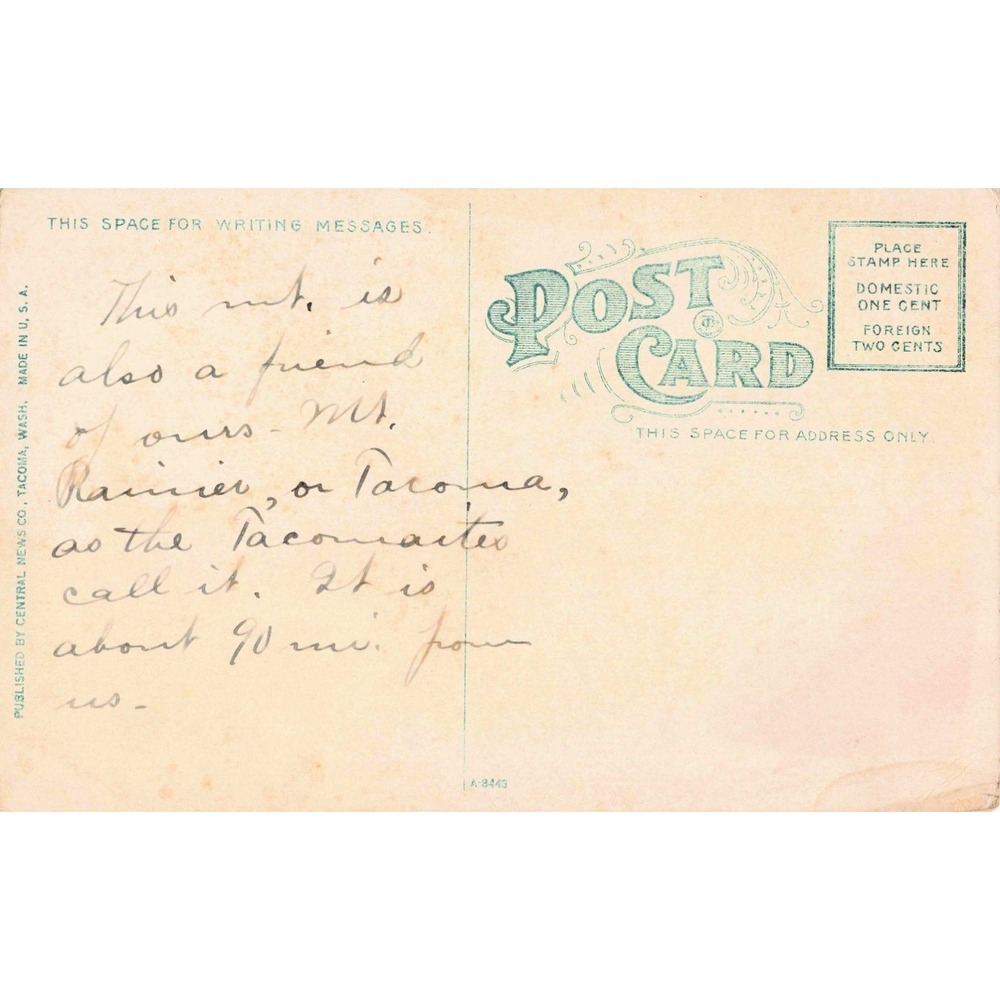 THIS SPACE FOR WRITING MESSAGES.
This mt. is
also a friend
of ours - Mt.
Rainier, or Tacoma,
as the Tacomaites
call it. It is
about 90 mi. from
us -
PUBLISHED BY CENTRAL NEWS CO., TACOMA, WASH. MADE IN U. S. A.
POST
CARD
THIS SPACE FOR ADDRESS ONLY.
PLACE
STAMP HERE
DOMESTIC
ONE CENT
FOREIGN
TWO CENTS
A-8443